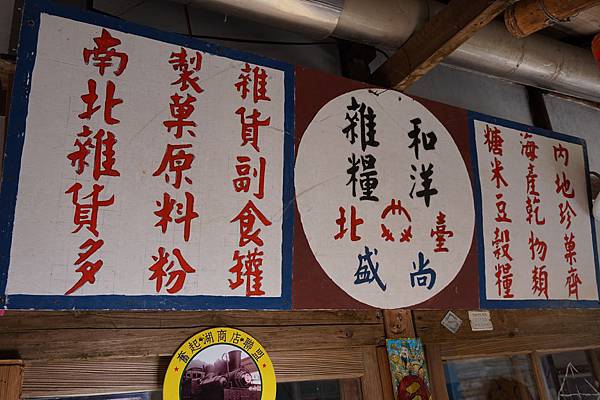 內地珍菓齊
海產乾物類
糖米豆穀糧
和洋
雜糧
臺北
尚盛
雜貨副食罐
製菓原料粉
南北雜貨多
奮起湖商店聯盟